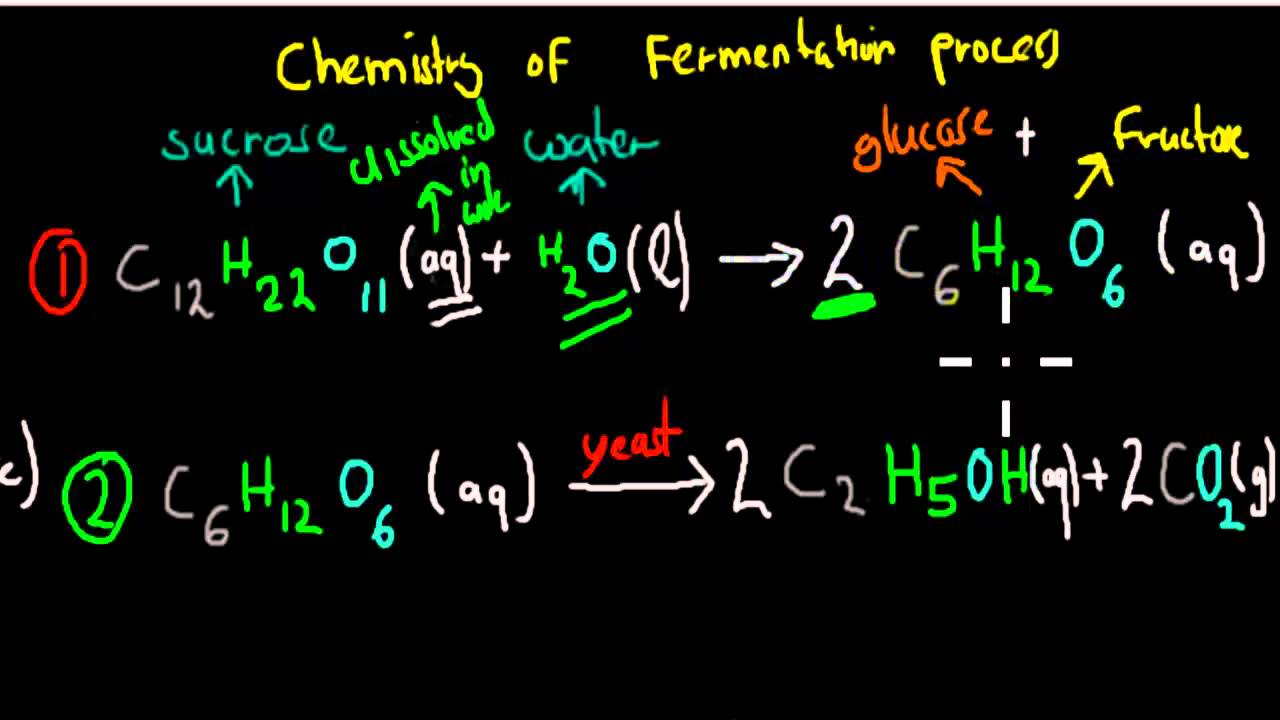 Chemistry of Fermentation process
sucrose dissolved in water glucose + Fructose
① C₁₂H₂₂O₁₁ (aq) + H₂O(l) → 2 C₆H₁₂O₆ (aq)
② C₆H₁₂O₆ (aq) yeast → 2 C₂H₅OH(aq) + 2CO₂(g)